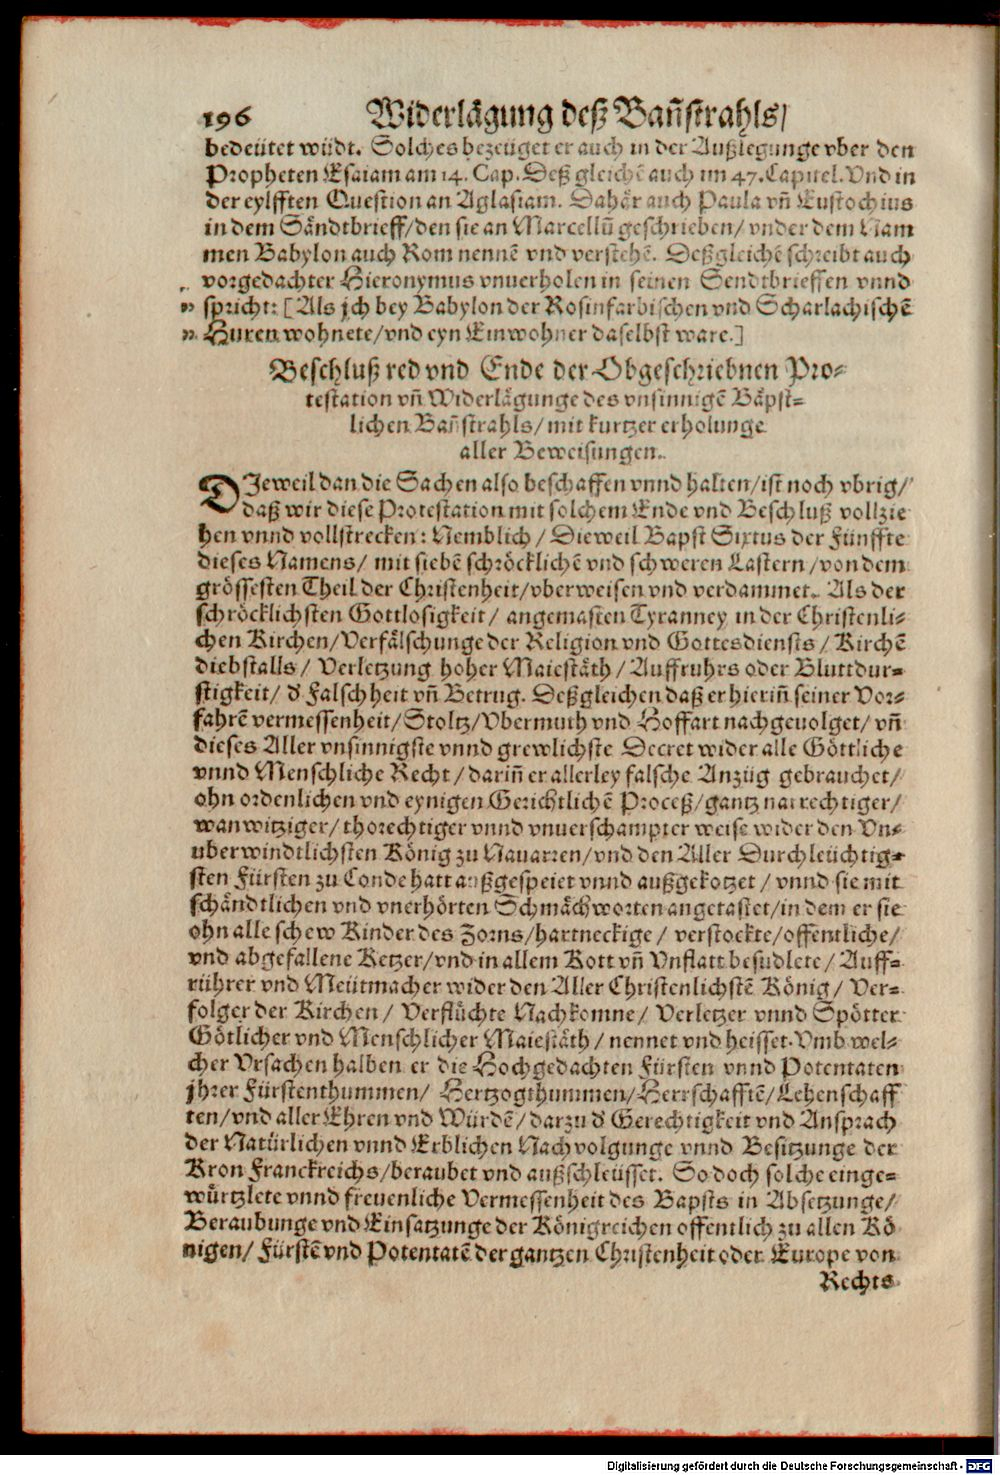 196 Widerlägung deß Bañstrahls/
bedeütet wüdt. Solches bezeüget er auch in der Außlegunge vber den
Propheten Esaiam am 14. Cap. Deß gleichẽ auch im 47. Capitel. Vnd in
der eylfften Question an Aglasiam. Dahär auch Paula vñ Eustochius
in dem Sändtbrieff/den sie an Marcellũ geschrieben/ vnder dem Nam
men Babylon auch Rom nennẽ vnd verstehẽ. Deßgleichẽ schreibt auch
vorgedachter Hieronymus vnuerholen in seinen Sendtbrieffen vnnd
„ spricht: [Als jch bey Babylon der Rosinfarbischen vnd Scharlachischẽ
„ Huren wohnete/vnd eyn Einwohner daselbst ware.]
Beschluß red vnd Ende der Obgeschriebnen Pro-
testation vñ Widerlägunge des vnsinnigẽ Bäpst-
lichen Bañstrahls/mit kurtzer erholunge
aller Beweisungen.
DJeweil dan die Sachen also beschaffen vnnd halten/ist noch vbrig/
daß wir diese Protestation mit solchem Ende vnd Beschluß vollzie
hen vnnd vollstrecken: Nemblich/ Dieweil Bapst Sixtus der Fünffte
dieses Namens/ mit siebẽ schröcklichẽ vnd schweren Lastern/von dem
grössesten Theil der Christenheit/vberweisen vnd verdammet. Als der
schröcklichsten Gottlosigkeit/ angemasten Tyranney in der Christenli-
chen Kirchen/Verfälschunge der Religion vnd Gottesdiensts/ Kirchẽ
diebstalls/ Verletzung hoher Maiestäth/ Auffruhrs oder Bluttdur-
stigkeit/ d' Falschheit vñ Betrug. Deßgleichen daß er hieriñ seiner Vor-
fahrẽ vermessenheit/Stoltz/Vbermuth vnd Hoffart nachgeuolget/ vñ
dieses Aller vnsinnigste vnnd grewlichste Decret wider alle Göttliche
vnnd Menschliche Recht/dariñ er allerley falsche Anzüg gebrauchet/
ohn ordenlichen vnd eynigen Gerichtlichẽ Proceß/gantz narrechtiger/
wanwitziger/thorechtiger vnnd vnuerschampter weise wider den Vn-
uberwindtlichsten König zu Nauarren/vnd den Aller Durchleüchtig-
sten Fürsten zu Conde hatt außgespeiet vnnd außgekotzet/ vnnd sie mit
schändtlichen vnd vnerhörten Schmächworten angetastet/in dem er sie
ohn alle schew Kinder des Zorns/hartneckige/ verstockte/offentliche/
vnd abgefallene Ketzer/vnd in allem Kott vñ Vnflatt besudlete/ Auff-
rührer vnd Meütmacher wider den Aller Christenlichstẽ König/ Ver-
folger der Kirchen/ Verflüchte Nachkomne/ Verletzer vnnd Spötter
Götlicher vnd Menschlicher Maiestäth/ nennet vnd heisset. Vmb wel-
cher Vrsachen halben er die Hochgedachten Fürsten vnnd Potentaten
jhrer Fürstenthummen/ Hertzogthummen/Herrschafftẽ/Lehenschaff
ten/vnd aller Ehren vnd Würdẽ/darzu d' Gerechtigkeit vnd Ansprach
der Natürlichen vnnd Erblichen Nachvolgunge vnnd Besitzunge der
Kron Franckreichs/beraubet vnd außschleüsset. So doch solche einge-
würtzlete vnnd freuenliche Vermessenheit des Bapsts in Absetzunge/
Beraubunge vnd Einsatzunge der Königreichen offentlich zu allen Kö
nigen/ Fürstẽ vnd Potentatẽ der gantzen Christenheit oder Europe von
Rechts
Digitalisierung gefördert durch die Deutsche Forschungsgemeinschaft - DFG